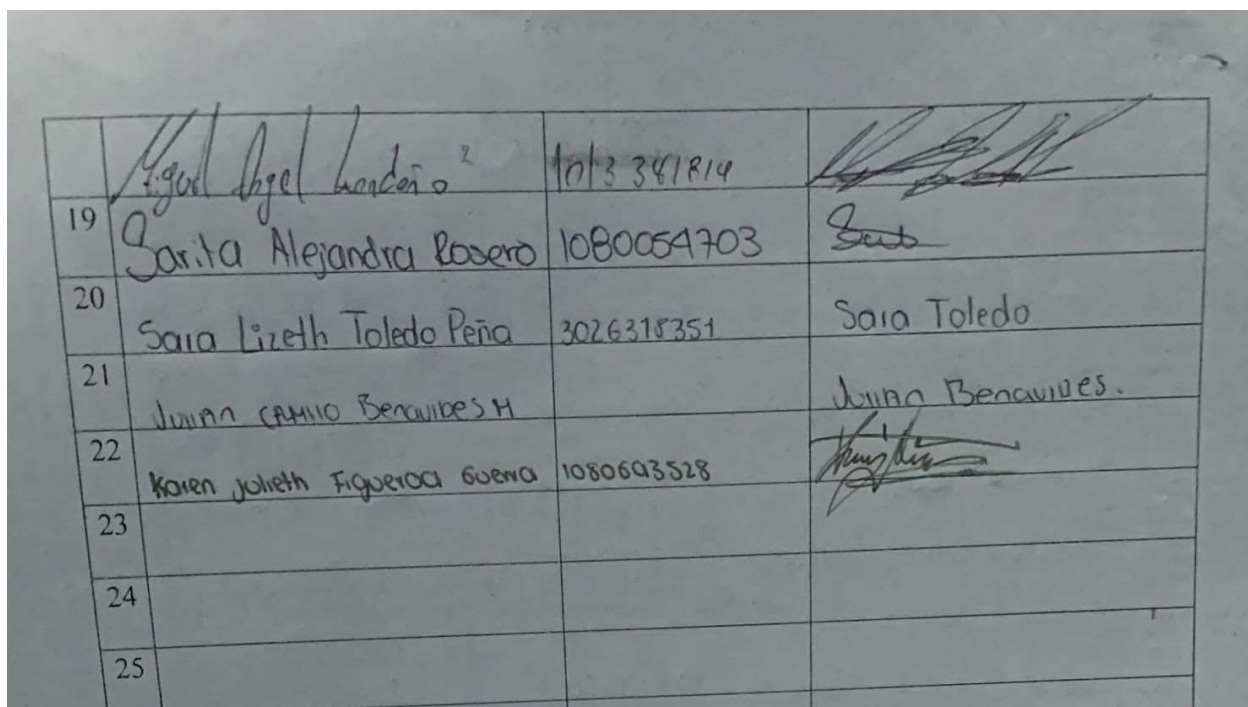 Miguel Angel Londoño
19 Sarita Alejandra Rosero 1080054703
20 Sara Lizeth Toledo Peña 3026318351 Sara Toledo
21 Julian CAMilo BenaviDes M Julian BenaviDes.
22 Karen Julieth Figueroa Guerra 1080693528
23
24
25